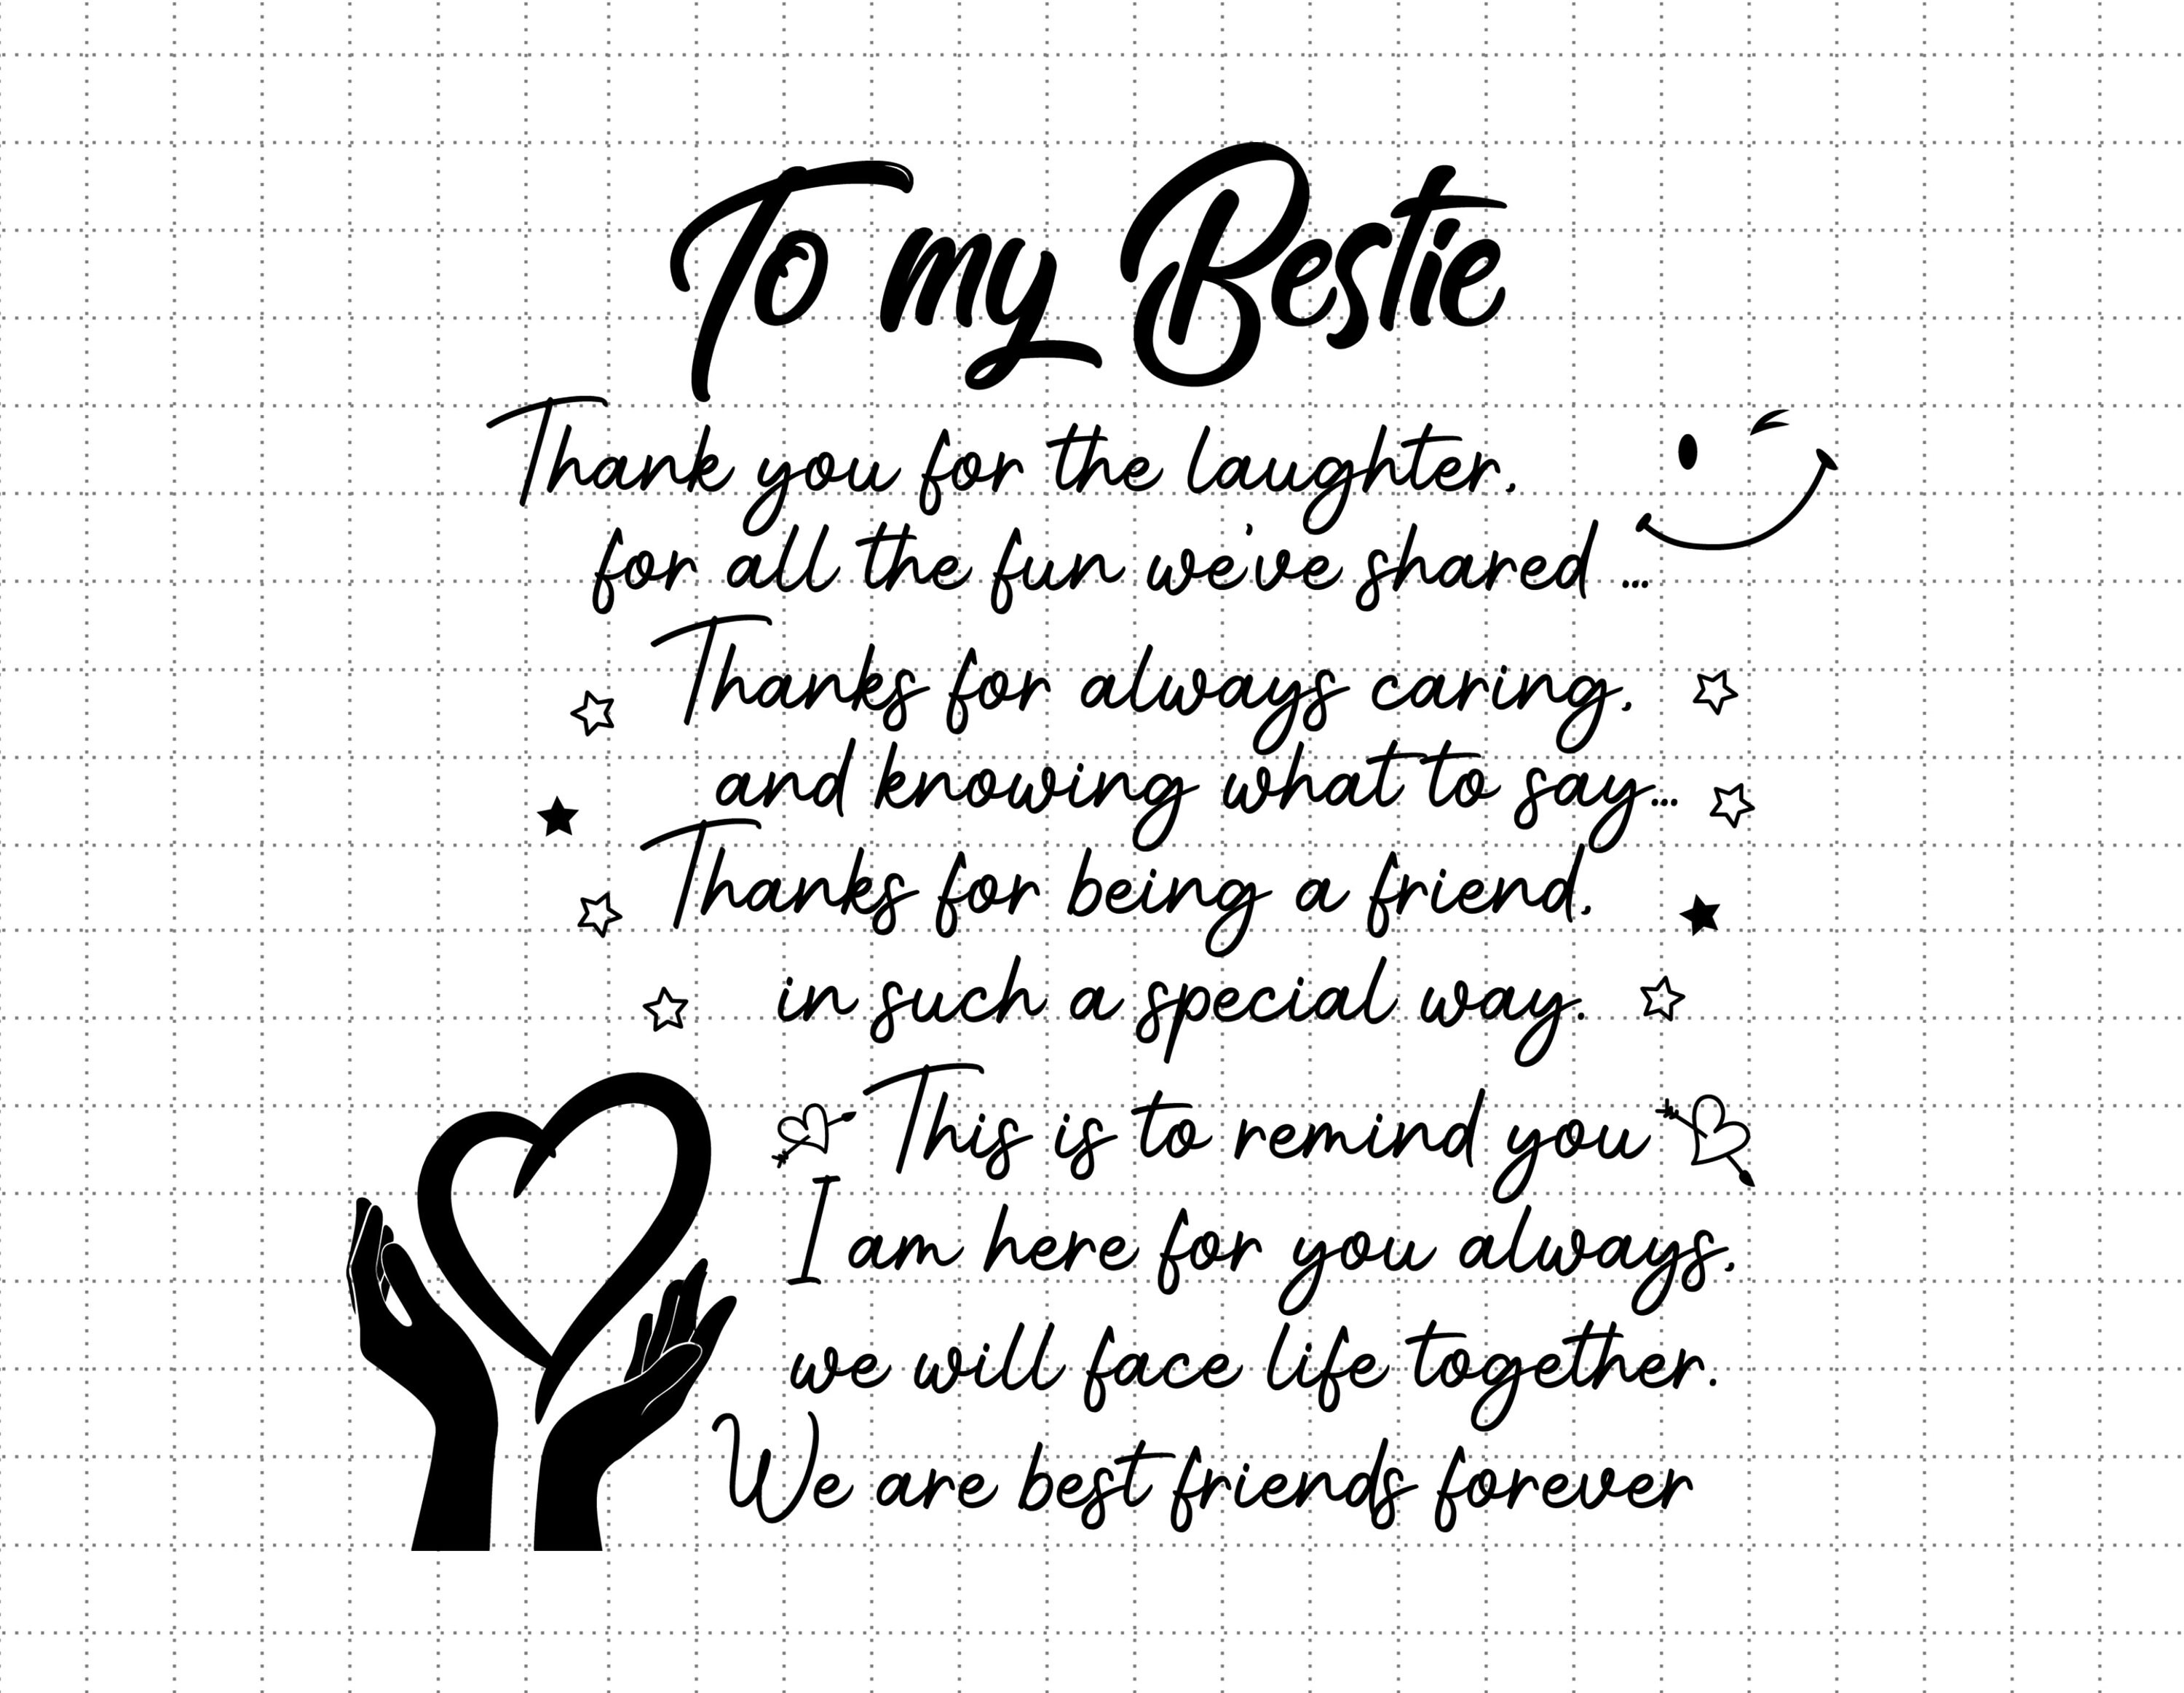 To my Bestie
Thank you for the laughter,
for all the fun we've shared ...
Thanks for always caring,
and knowing what to say...
Thanks for being a friend,
in such a special way.
This is to remind you
I am here for you always,
we will face life together.
We are best friends forever